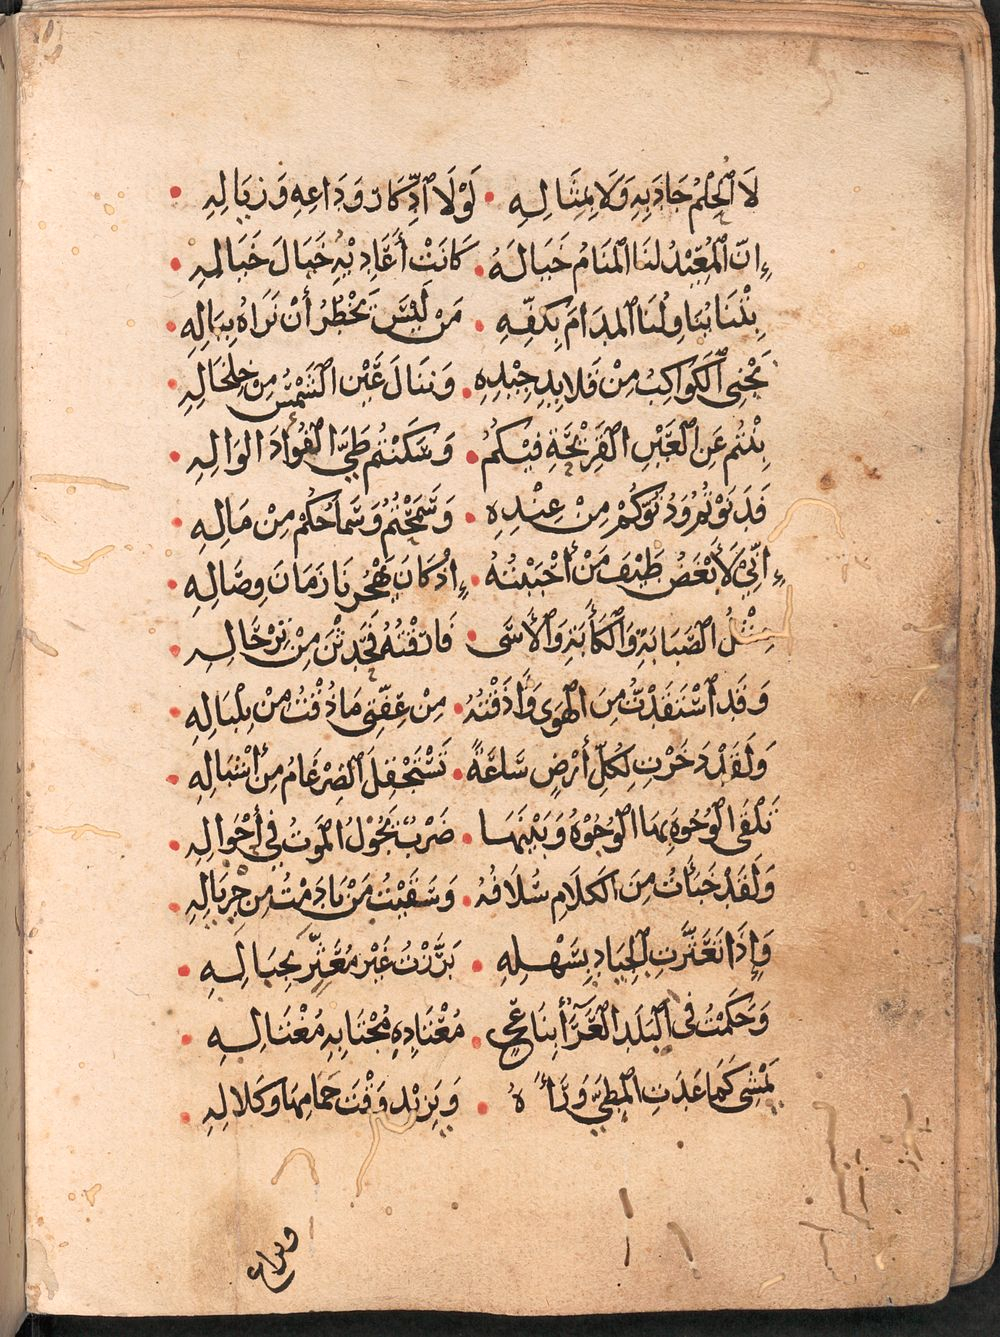 لَا ٱلْحِلْمُ جَادَ بِهِ وَلَا بِمِثَالِهِ • لَوْلَا ٱدِّكَارُ وَدَاعِهِ وَزِيَالِهِ •
إِنَّ ٱلْمُعِيْدَ لَنَا ٱلْمَنَامُ خَيَالَهُ • كَانَتْ أَعَادِيْهِ خَيَالَ خَيَالِهِ •
بِتْنَا يُنَاوِلُنَا ٱلْمدَامَ بِكَفِّهِ • مَنْ لَيْسَ يَخْطُرُ أَنْ نَرَاهُ بِبَالِهِ •
نَجْنِي ٱلْكَوَاكِبَ مِنْ قَلَايِدِ جِيْدِهِ • وَنَنَالَ عَيْنَ ٱلشَّمْسِ مِنْ خِلْخَالِهِ •
بِنْتُم عَنِ ٱلْعَيْنِ ٱلْقَرِيْحَةِ فِيْكُمُ • وَسَكَنْتُم طَيَّ ٱلْفُؤَادَ الوَالِهِ •
فَدَنَوْتُمُ وَدُنُوّكُمْ مِنْ عِنْدِهِ • وَسَمَحْتُمُ وَسَمَاحُكُمْ مِنْ مَالِهِ •
إِنِّيْ لَأَبْغَضُ طَيْفَ مَنْ أَحْبَبْتُهُ • إِذْ كَانَ يَهْجُرنَا زَمَانَ وِصَالِهِ •
مِثْلُ ٱلصَّبَابَةِ وَٱلْكَأبَةِ وَٱلْأَسَى • فَارَقْتُهُ فَحَدَثْنَ مِنْ تِرْحَالِهِ •
وَقَدِ ٱسْتَقَدْتُ مِنَ ٱلْهَوَى وَأَذَقْتُهُ • مِنْ عِفَّتِي مَا ذُقْتُ مِنْ بِلْبَالِهِ •
وَلَقَدْ دَخَرْتُ لِكُلِّ أَرْضٍ سَاعَةً • تَسْتَجْفِلَ ٱلضِّرْغَامُ مِنْ أَشْبَالِهِ •
تَلْقَى ٱلْوُجُوهَ بِهَا ٱلْوُجُوْهُ وَبَيْنَهَا • ضَرْبٌ يَجُوْلُ ٱلْمَوتُ فِي أَجْوَالِهِ •
وَلَقَدْ خَبَأتُ مِنَ ٱلْكَلَامِ سُلَافَهُ • وَسَقَيْتُ مَنْ نَادَمْتُ مِن جِرْيَالِهِ •
وَإِذَا تَعَثَّرَتِ ٱلْجِيَادِ بِسَهْلِهِ • بَرَّزْتُ غَيْرَ مُعَثَّرٍ بِجِبَالِهِ •
وَحَكَمْتُ فِي ٱلْبَلَدِ ٱلْعَرَآءِ بِنَاعِجٍ • مُعْتَادِهِ مُجْتَابِهِ مُغْتَالِهِ •
يَمْشِي كَمَا عَدَتِ ٱلْمِطَيّ وَرَاءَهُ • وَيَزِيْد وَقْتَ جَمَامِهَا وَكَلَالِهِ •
وتراع